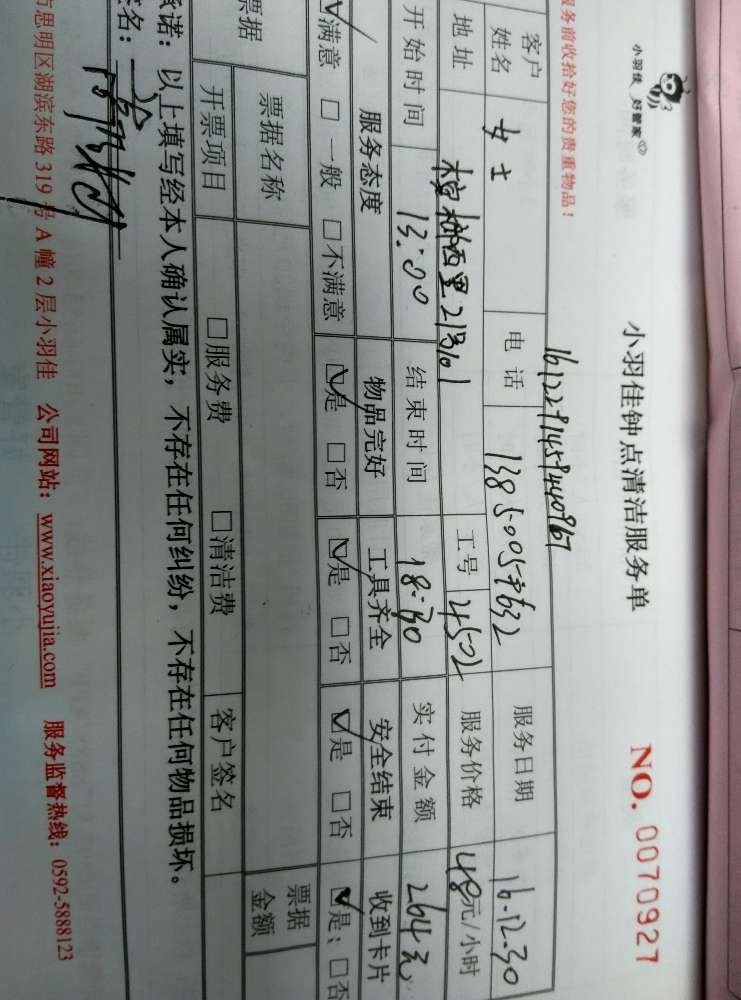 小羽佳 好管家
小羽佳钟点清洁服务单
NO. 0070927
务前收拾好您的贵重物品!
1612291459440967
客户姓名 女士 电话 服务日期 16.12.30
地址 槟榔西里213101 工号 4502 服务价格 48元/小时
开始时间 13:00 结束时间 18:30 实付金额 264元
服务态度 物品完好 工具齐全 安全结束 收到卡片
☑满意 □一般 □不满意 ☑是 □否 ☑是 □否 ☑是 □否 ☑是; □否
票据 票据名称 票据金额
开票项目 □服务费 □清洁费 客户签名
承诺:以上填写经本人确认属实,不存在任何纠纷,不存在任何物品损坏。
签名:
市思明区湖滨东路 319 号 A 幢 2 层小羽佳 公司网站:www.xiaoyujia.com 服务监督热线:0592-5888123